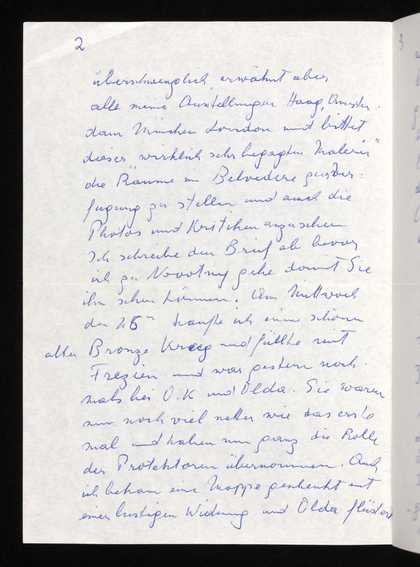 2
überschwenglich erwähnt aber
alle meine Ausstellungen Haag, Amster-
dam München London und bittet
dieser "wirklich sehr begabten Malerin"
die Räume im Belvedere zur Ver-
fügung zu stellen und auch die
Photos und Kritiken anzusehen
Ich schreibe den Brief ab bevor
ich zu Novotny gehe damit Sie
ihn sehen können. Am Mittwoch
den 26ten kaufte ich einen schönen
alten Bronze Krug und füllte mit
Frezien und war gestern noch-
mals bei O.K und Olda. Sie waren
nun noch viel netter wie das erste
mal und haben nun ganz die Rolle
der Protektoren übernommen. Auch
ich bekam eine Mappe geschenkt mit
einer lustigen Widmung und Olda flüstert
3